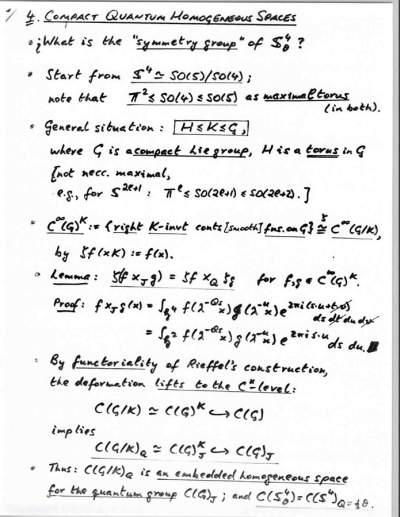 4. COMPACT QUANTUM HOMOGENEOUS SPACES
• ¿What is the "symmetry group" of 𝕊⁴_θ ?
• Start from 𝕊⁴ ≃ SO(5)/SO(4) ;
note that 𝕋² ≤ SO(4) ≤ SO(5) as maximal torus
(in both).
• General situation : H ≤ K ≤ G ,
where G is a compact Lie group, H is a torus in G
[not necc. maximal,
e.g., for 𝕊^{2l+1} : 𝕋^l ≤ SO(2l+1) ≤ SO(2l+2). ]
• C^∞(G)^K := {right K-invt conts [smooth] fns. on G} ≅^ζ C^∞(G/K),
by ζf(xK) := f(x).
• Lemma : ζ(f ×_J g) = ζf ×_Q ζg for f,g ∈ C^∞(G)^K.
Proof : f ×_J g(x) = ∫_{𝔥⁴} f(2^{-Qs}x) g(2^{-u}x) e^{2πi(s·u+t·v)} ds dt du dv
= ∫_{𝔥²} f(2^{-Qs}x) g(2^{-u}x) e^{2πi s·u} ds du. ■
• By functoriality of Rieffel's construction,
the deformation lifts to the C*-level :
C(G/K) ≃ C(G)^K ↪ C(G)
implies
C(G/K)_Q ≃ C(G)^K_J ↪ C(G)_J
• Thus : C(G/K)_Q is an embedded homogeneous space
for the quantum group C(G)_J ; and C(𝕊⁴_θ) = C(𝕊⁴)_{Q=½θ}.